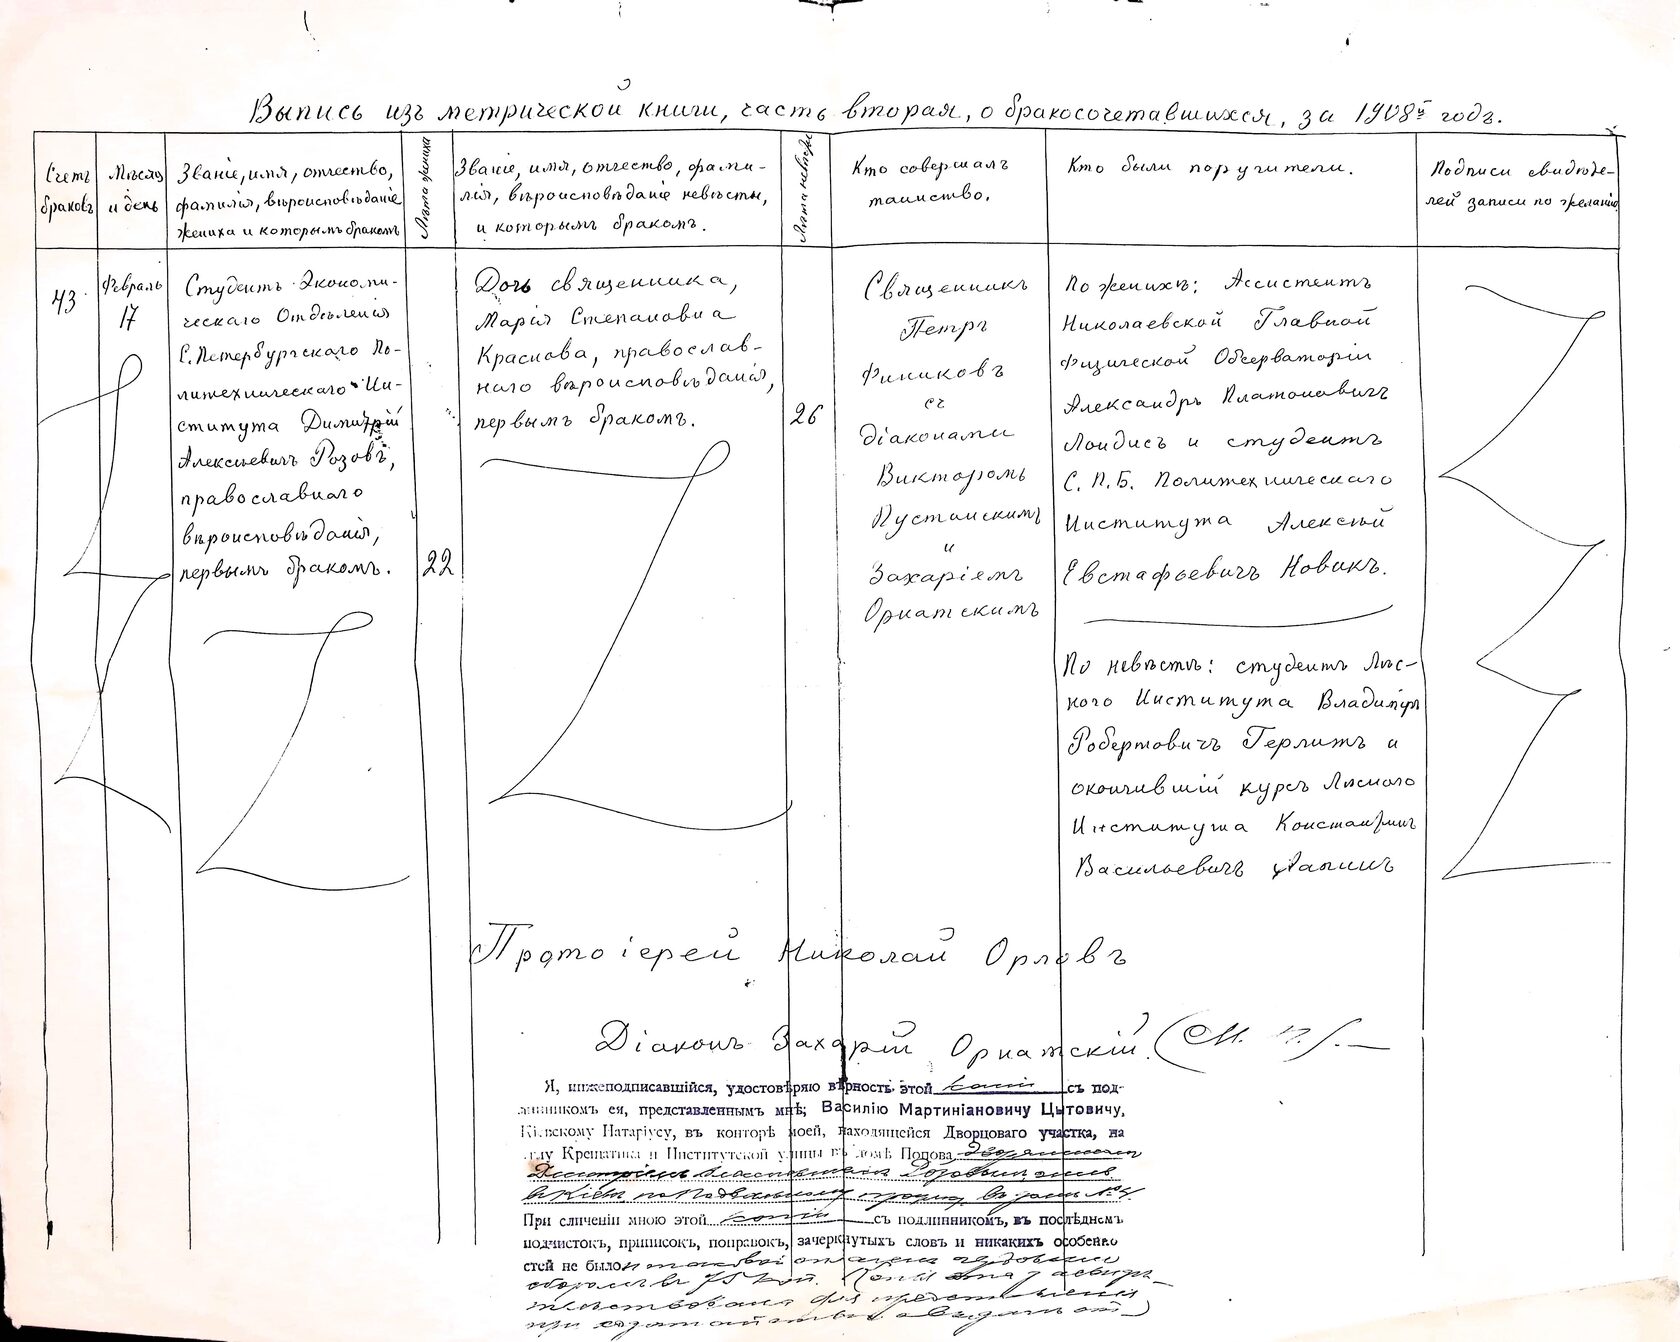 Выпись изъ метрической книги, часть вторая, о бракосочетавшихся, за 1908й годъ.
Счетъ
браковъ
Мѣсяцъ
и день
Званіе, имя, отчество,
фамилія, вѣроисповѣданіе
жениха и которымъ бракомъ
Лѣта жениха
Званіе, имя, отчество, фами-
лія, вѣроисповѣданіе невѣсты,
и которымъ бракомъ.
Лѣта невѣсты
Кто совершалъ
таинство.
Кто были поручители.
Подписи свидѣте-
лей записи по желанію
43
Февраль
17
Студентъ Экономи-
ческаго Отдѣленія
С. Петербургскаго По-
литехническаго Ин-
ститута Димитрій
Алексѣевичъ Розовъ,
православнаго
вѣроисповѣданія,
первымъ бракомъ.
22
Дочь священника,
Марія Степановна
Краснова, православ-
наго вѣроисповѣданія,
первымъ бракомъ.
26
Священникъ
Петръ
Финиковъ
съ
діаконами
Викторомъ
Пустынскимъ
и
Захаріемъ
Орнатскимъ
По женихѣ: Ассистентъ
Николаевской Главной
Физической Обсерваторіи
Александръ Платоновичъ
Лоидисъ и студентъ
С. П. Б. Политехническаго
Института Алексѣй
Евстафьевичъ Новикъ.
По невѣстѣ: студентъ Лѣс-
ного Института Владиміръ
Робертовичъ Герлитъ и
окончившій курсъ Лѣсного
Института Константинъ
Васильевичъ
Протоіерей Николай Орловъ
Діаконъ Захарій Орнатскій. (М. П.). —
Я, нижеподписавшійся, удостовѣряю вѣрность этой копіи съ под-
линникомъ ея, представленнымъ мнѣ, Василію Мартиніановичу Цытовичу,
Кіевскому Натаріусу, въ конторѣ моей, находящейся Дворцоваго участка, на
углу Крещатика и Институтской улицы въ домѣ Попова, дворянином
въ Кіевѣ, по въ домѣ №
При сличеніи мною этой копіи съ подлинникомъ, въ послѣднемъ
подчистокъ, приписокъ, поправокъ, зачеркнутыхъ словъ и никакихъ особенно
стей не было, и таковой оплаченъ гербовымъ
сборомъ въ 75 коп. Копія эта засвидѣ-
тельствована для представленія
при ходатайствѣ о выдачѣ